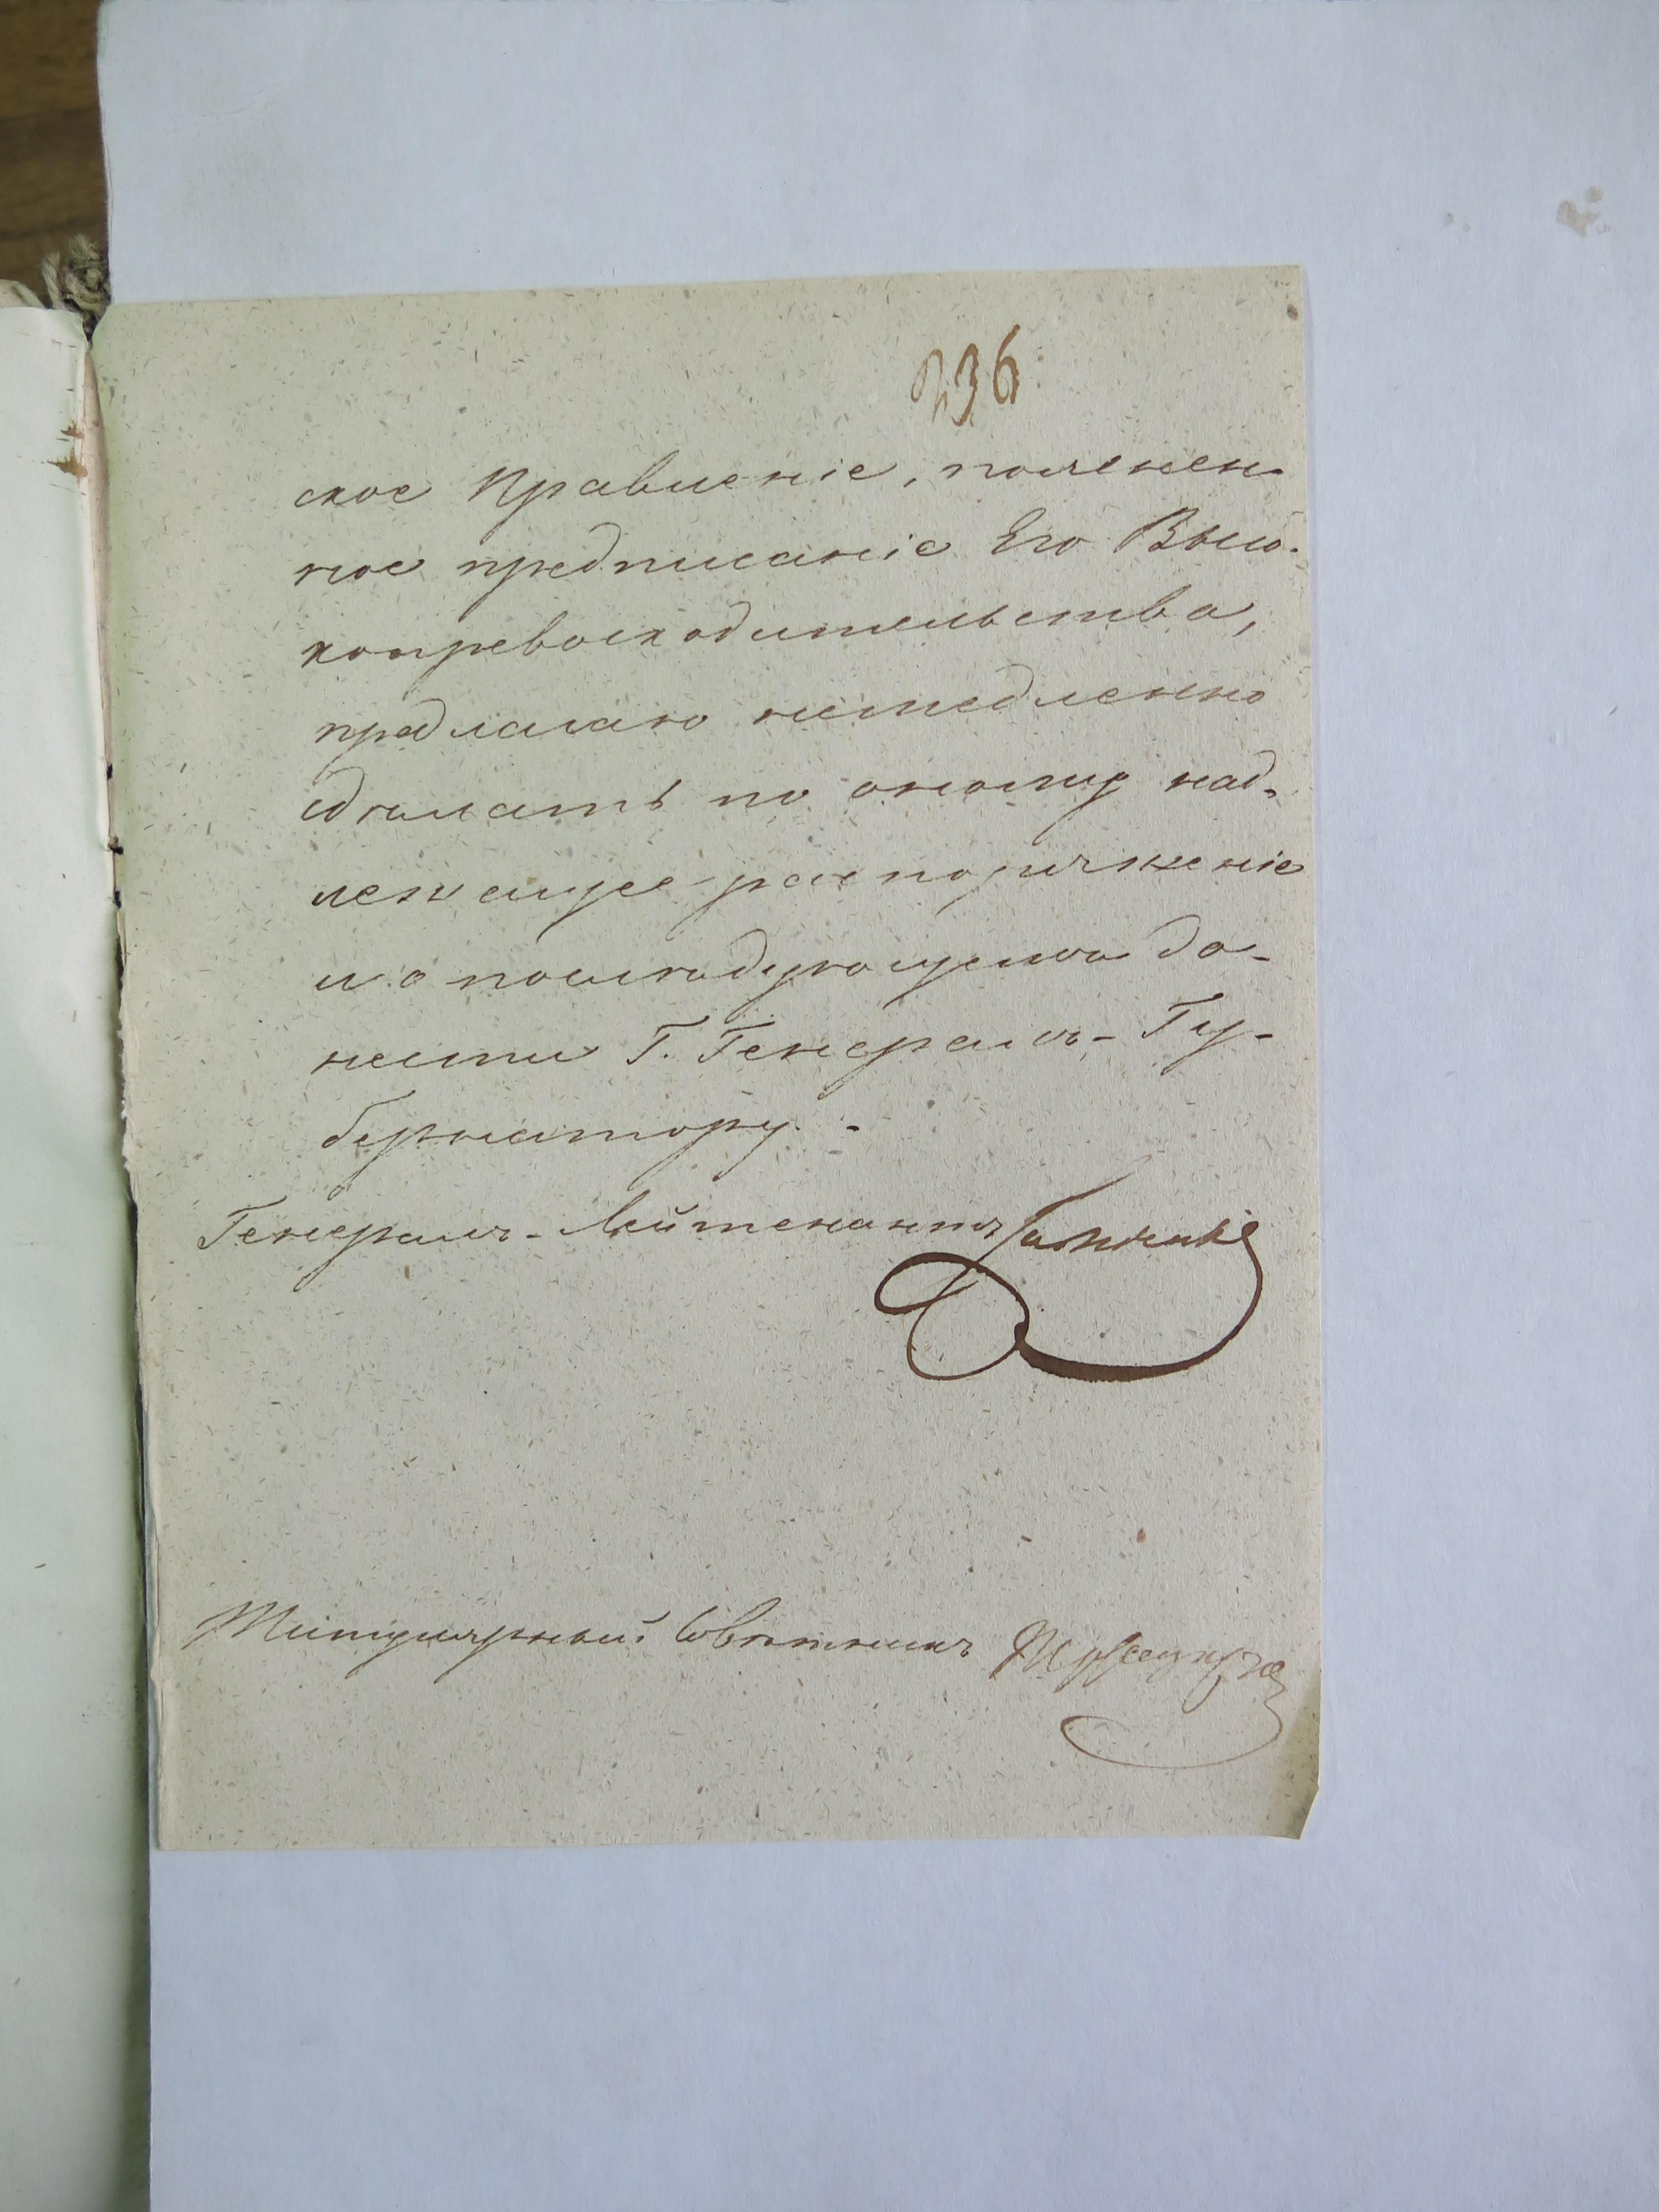 236
ское Правленіе, поясненное
ное предписаніе Его Высо-
копревосходительства,
предлагаю немедленно
сдѣлать по оному над-
лежащее распоряженіе
и о послѣдующемъ до-
нести Г. Генералъ-Гу-
бернатору.
Генералъ-Лейтенантъ
Титулярный Совѣтникъ